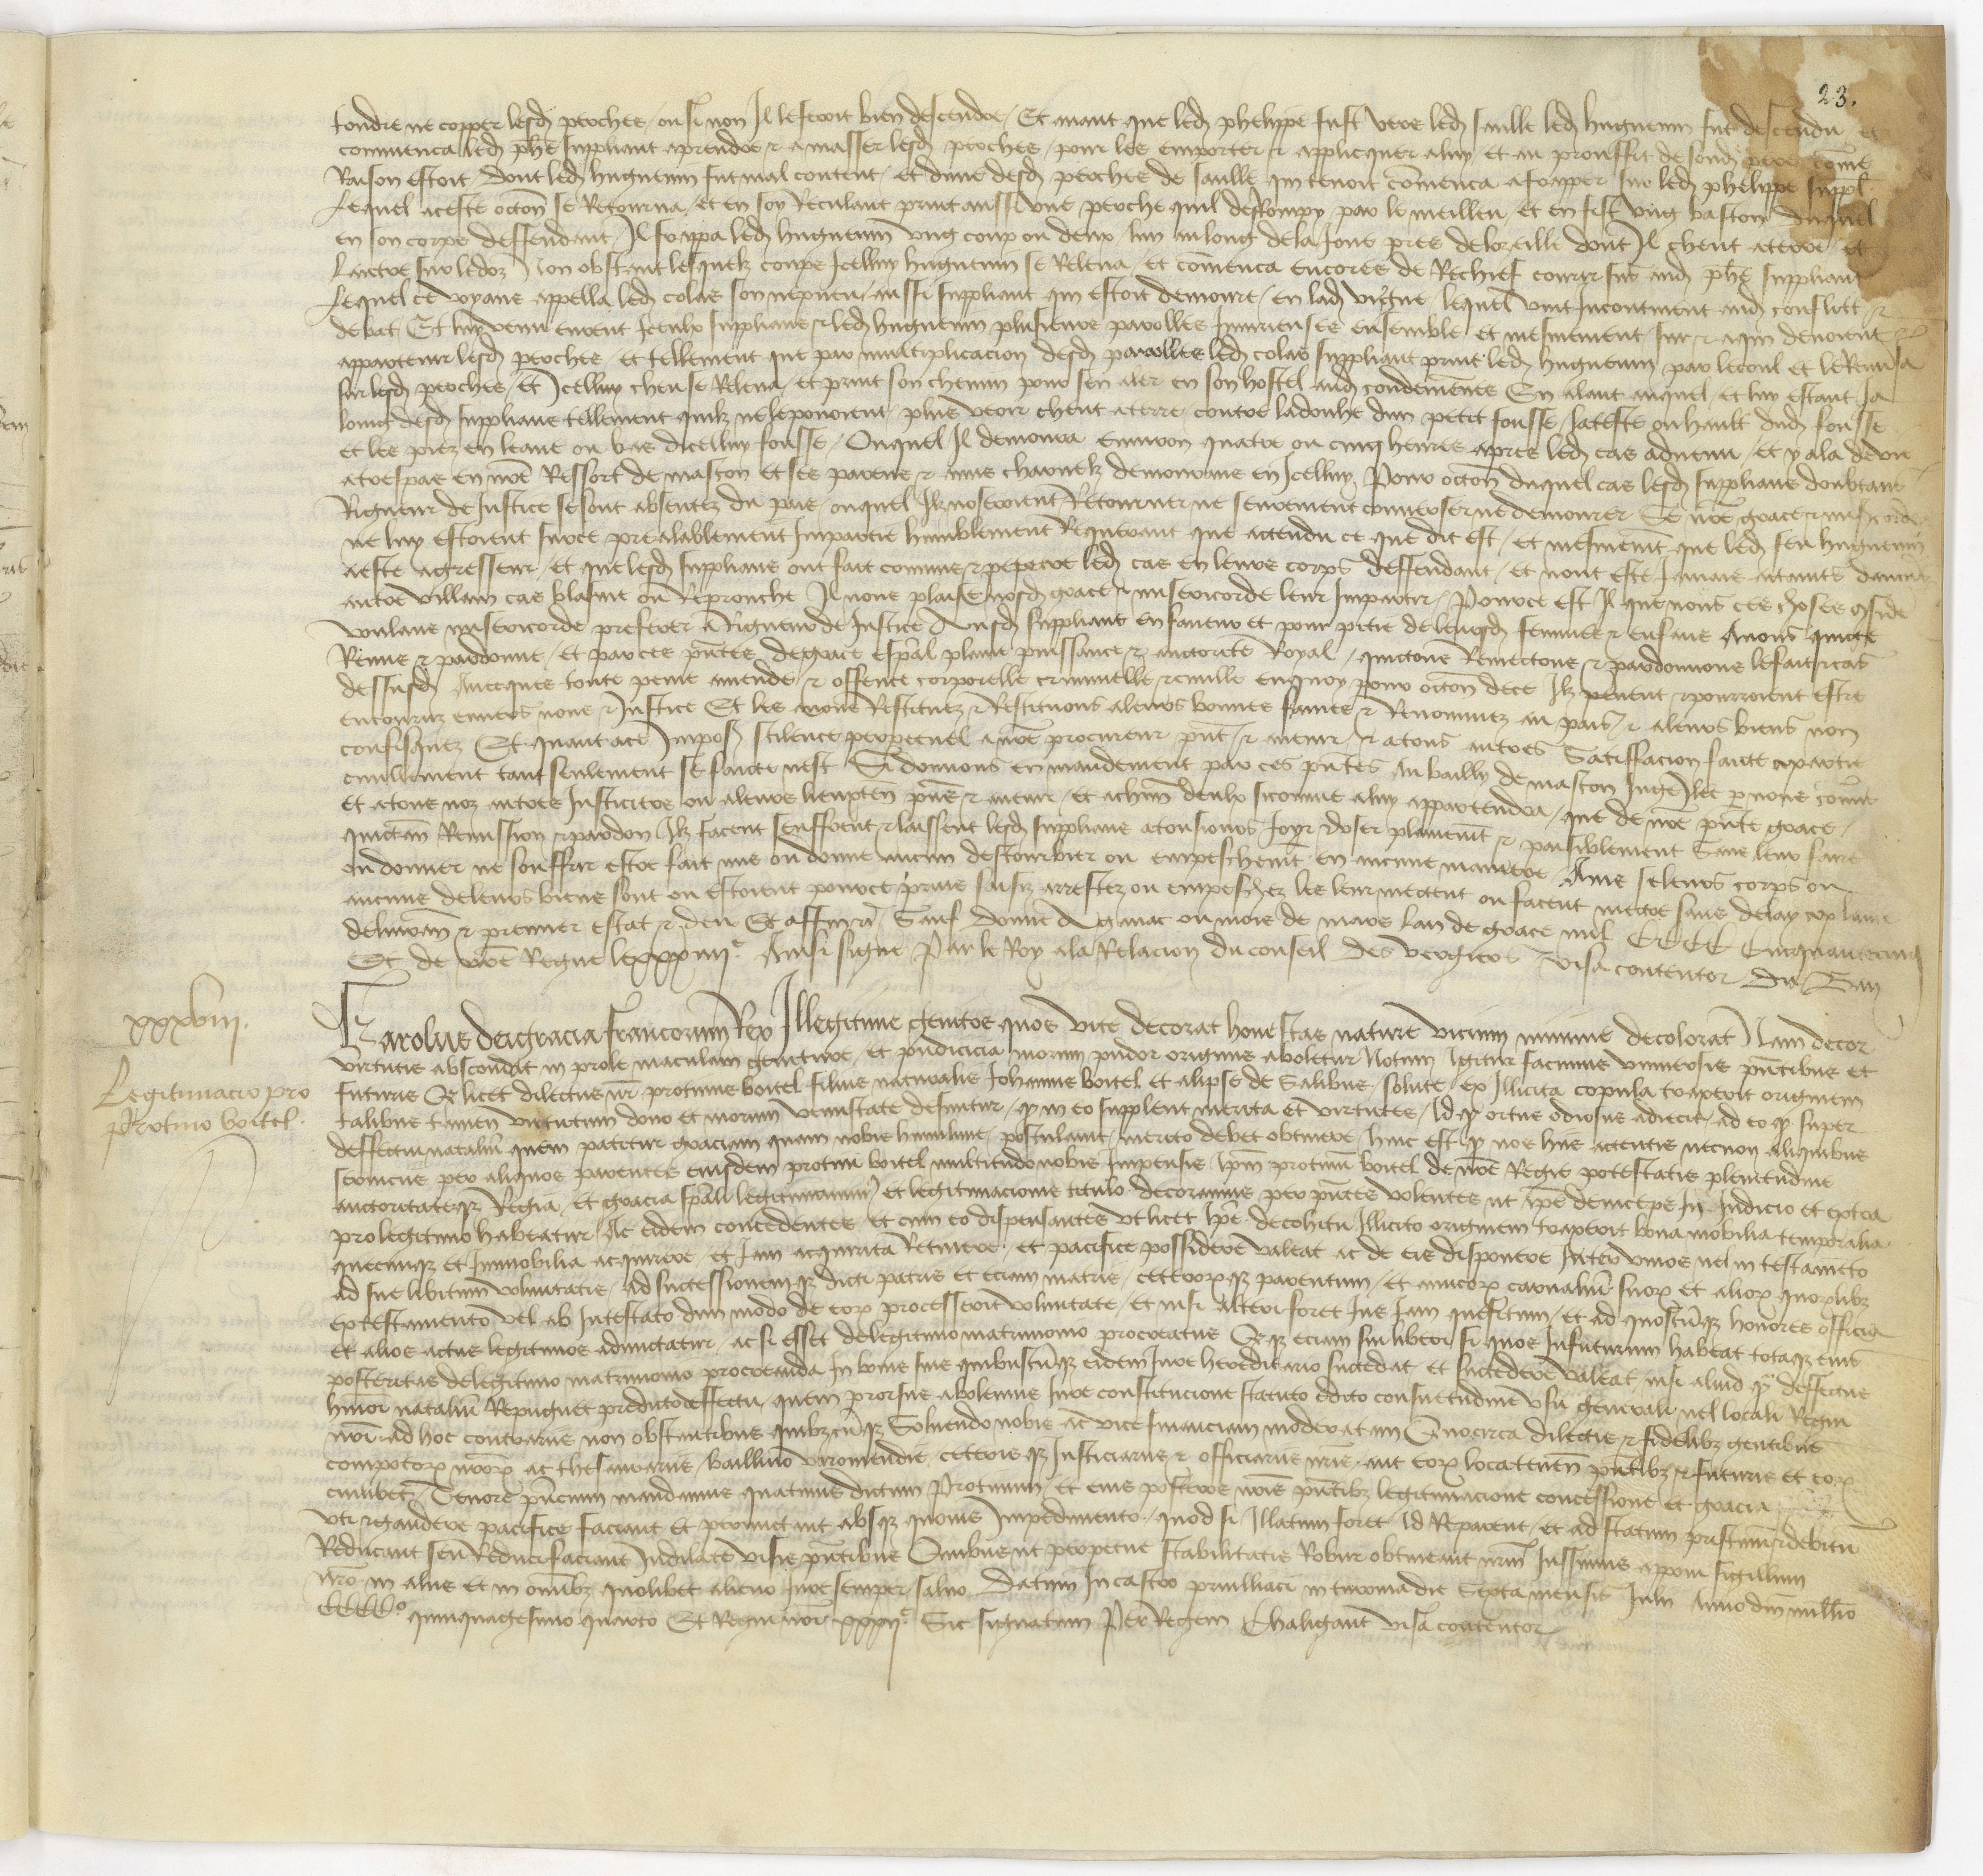 23.
tondre ne copper lesd perches / ou si non Il le feroit bien descendre / Et avant que led phelippe fust vers led saulle led huguenin fut descendu et
commenca led phe suppliant a prendre & a masser lesd perches / pour les emporter & applicquer a luy / et au prouffit de sond pere come
Raison estoit / dont led huguenin fut mal content / et dune desd perches de saulle quil tenoit comenca a frapper sur led phelippe suppl
Lequel a ceste occon se Retourna / et en soy Reculant print aussi une perche quil desrompy par le meilleu / et en fist ung baston duquel
en son corps deffendant / Il frappa led huguenin ung coup ou deux / lun au long de la Joue pres de loreille dont Il cheut a terre / et
lautre sur le doz Non obstant lesquelz coups Icelluy huguenin se Releva / et comenca encores de Rechief courir sus aud phe suppliant
Lequel ce voyant appella led colas son nepveu / aussi suppliant qui estoit demoure / en lad vigne / lequel vint Incontinent aud conflict &
debat Et luy venu eurent Iceulx supplians & led huguenin plusieurs parolles Iniurieuses ensemble et mesmement sur & a qui devoient
appartenir lesd perches / et tellement que par multiplicacion desd parolles led colas suppliant print led huguenin par le coul et le Renversa
sur lesd perches / Et Icelluy cheut se Releva / et print son chemin pour sen aler en son hostel aud condemenes En alant auquel / et luy estant Ja
loing desd supplians tellement quilz ne le povoient / plus veoir cheut a terre / contre la douhe dun petit fousse / la teste ou hault dud fousse
et les piez en leaue ou bas dicelluy fousse / Ouquel Il demoura environ quatre ou cinq heures apres led cas advenu / et y ala de vie
a trespas en nre Ressort de mascon et ses parens & amis charnelz demourans en Icelluy Pour occon duquel cas lesd supplians doubtans
Rigueur de Justice se sont absentez du pais / ouquel Ilz noseroient Retourner ne seurement converser ne demourer Se nre grace & misericorde
ne luy estoient sur ce prealablement Impartie humblement Requerant que attendu ce que dit est / et mesmemt que led feu huguenin
a este agresseur / et que lesd supplians ont fait comme & perpetre led cas en leurs corps deffendant / et nont este Jamais attains daucun
autre villain cas blasme ou Reprouche Il nous plaise nosd grace & misericorde leur Impartir / Pource est Il que nous ces choses conside
voulans misericorde preferer a Rigueur de Justice Ausd supplians en faveur et pour pitie de leursd femmes & enfans Avons quicte
Remis & pardonne / et par ces pntes de grace espal plaine puissance & auctorite Royal / quictons Remectons & pardonnons le fait & cas
dessusd Avecques toute peine amende & offence corporelle criminelle & civille en quoy pour occon de ce Ilz pevent & pourroient estre
encouruz envers nous & Justice Et les avons Restituez & Restituons a leurs bonnes fames & Renommez au pais & a leurs biens non
confisquez Et quant a ce Imposon scilence perpetuel a nre procureur pnt & avenir & a tous autres Satisfacion faicte a partie
civilement tant seulement se faicte nest Si donnons en mandement par ces pntes Au bailly de mascon Juge Ilec par nous comis
et a tous noz autres Justiciers ou a leurs lieuxten pns & avenir / et a chun deulx sicomme a luy appartendra / que de nre pnte grace
quictan Remission & pardon Ilz facent seuffrent & laissent lesd supplians a tousiours Joyr & user plainemt & paisiblement Sans leur faire
ou donner ne souffrir estre fait mis ou donne aucun destourbier ou empeschemt en aucune maniere Ains se leurs corps ou
aucuns de leurs biens sont ou estoient pource prins saisiz arrestez ou empeschez les leur mectent ou facent mectre sans delay a plaine
delivran & premier estat & deu Et affin &c Sauf &c Donne a gannat ou mois de mars lan de grace mil CCCC Cinquante cinq
Et de nre Regne le xxxiiij.e Ainsi signe Par le Roy a la Relacion du conseil Des vergiers Visa contentor Du Ban
xxxviij.
Legitimacio pro
Protino boitel.
Karolus dei gracia francorum Rex Illegitime genitos quos vite decorat honestas nature vicium minime decolorat Nam decor
virtutis abscondit in prole maculam geniture / et pudicicia morum pudor originis aboletur Notum Igitur facimus universis pntibus et
futuris Qz licet dilectus nr protinus boitel filius naturalis Johannis boitel et alipse de Salibus / solute / ex Illicita copula traxerit originem
talibus tamen virtutum dono et morum venustate decinitur / qz in eo supplent merita et virtutes / Id qz ortus odiosus adiecit / ad eo qz super
deffectu natalium quem patitur graciam quam nobis humiliter / postulavit / merito debet obtinere / hinc est qz nos hiis attentis necnon aliquibus
serviciis per aliquos parentes eiusdem protini boitel multitudo nobis Impensis Ipm protinu boitel de nre Regie potestatis plenitudine
auctoritateqz Regia / et gracia spali legitimavimus et legitimacionis titulo decoramus per pntes volentes ut Ipe deinceps In Judicio et extra
pro legitimo habeatur / Ac eidem concedentes et cum eo dispensantes ut licet Ipe de cohitu Illicito originem traxerit bona mobilia temporalia
quecunqz et Immobilia acquirere / et Jam acquisita Retinere / et pacifice possidere valeat ac de eis disponere Inter vivos vel in testamento
ad sue libitum voluntatis / ad successionemqz dicti patris et eciam matris / ceterorqz parentum / et amicorum carnalium suorum et aliorum quorumlibz
ex testamento vel ab Intestato dum modo de eorum processerit voluntate / et nisi alteri foret Jus Jam quesitum / et ad quoscunqz honores officia
et alios actus legitimos admictatur / ac si esset de legitimo matrimonio procreatus Qz qz eciam sui liberi si quos Infuturum habeat totaqz eius
posteritas de legitimo matrimonio procreanda In bonis suis quibuscunqz eidem Jure hereditario succedat et succedere valeat / nisi aliud qz deffectus
huiusmodi natalium Repugnet predicto deffectu / quem prorsus abolemus Jure constitucione statuto edicto consuetudine usu generali vel locali Regni
nri ad hoc contrariis non obstantibus quibzcunqz Solvendo nobis ac vice financiam moderatam Quocirca dilectis & fidelibz gentibus
compotorum nrorum ac thesaurariis / baillivo viromendie ceterisqz Justiciariis & officiariis nris aut eorum locatenen pntibz & futuris et eorum
cuilibet / Tenore pncium mandamus quatinus dictum Protinum / et eius posteros nris pntibz legitimacione concessione et gracia
uti & gaudere pacifice faciant et permictant absqz quovis Impedimento / quod si Illatum foret Id Reparent / et ad statum pristinum & debitu
Reducant seu Reduci faciant Indilate visis pntibus Quibus ut perpetue stabilitatis Robur obtineant nrm Jussimus apponi sigillum
nro in aliis et in omibz quolibet alieno Jure semper salvo Datum In castro pruilliaci in turonia die Sexta mensis Julii Anno dni millio
CCCC.o quinquagesimo quarto Et Regni nri xxxij.o Sic signatum Per Regem Chaligant visa contentor